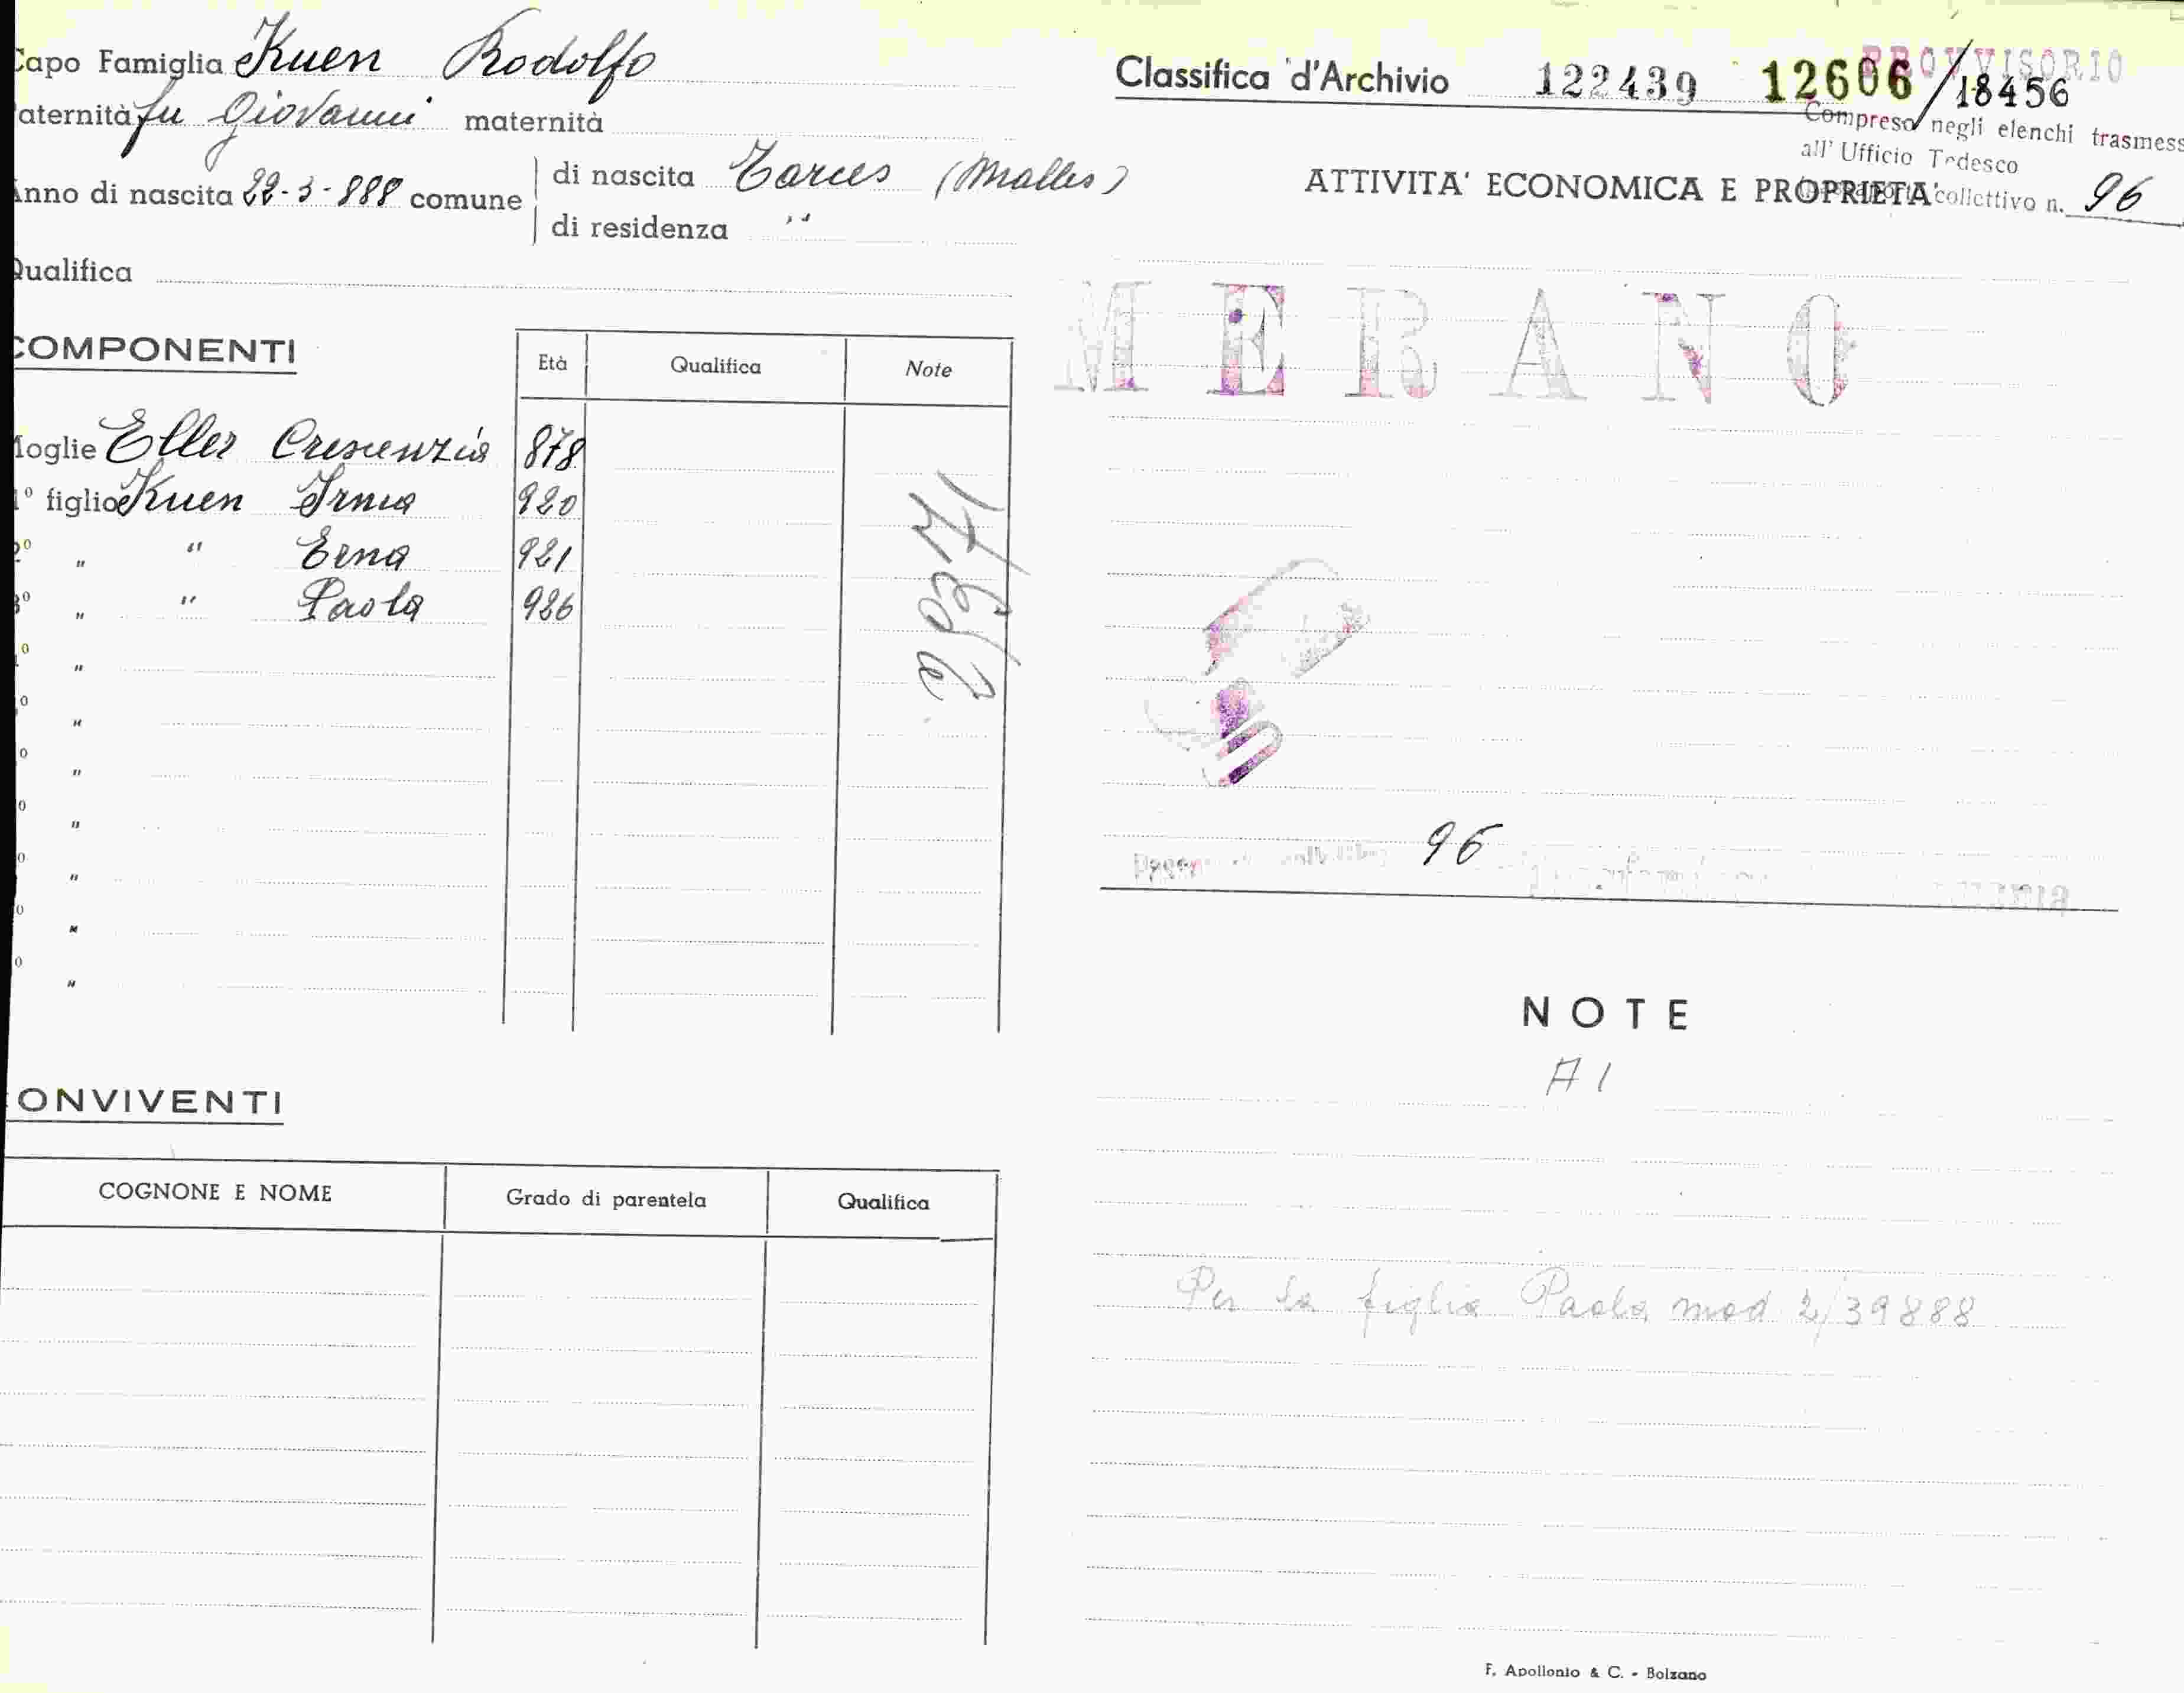 Capo Famiglia Kuen Rodolfo
aternità fu Giovanni maternità
Anno di nascita 22-3-888 comune
di nascita Tarces (Malles)
di residenza "
Qualifica
COMPONENTI
Età Qualifica Note
Moglie Eller Crescenzia 878
1° figlio Kuen Irma 920
2° " " Erna 921
3° " " Paola 926
"
"
"
"
"
"
"
CONVIVENTI
COGNONE E NOME Grado di parentela Qualifica
Classifica d'Archivio 122439 12606/18456
PROVVISORIO
Compreso negli elenchi trasmess
all' Ufficio Tedesco
collettivo n. 96
ATTIVITA' ECONOMICA E PROPRIETA'
MERANO
96
NOTE
A 1
Per la figlia Paola mod 2/39888
F. Apollonio & C. - Bolzano